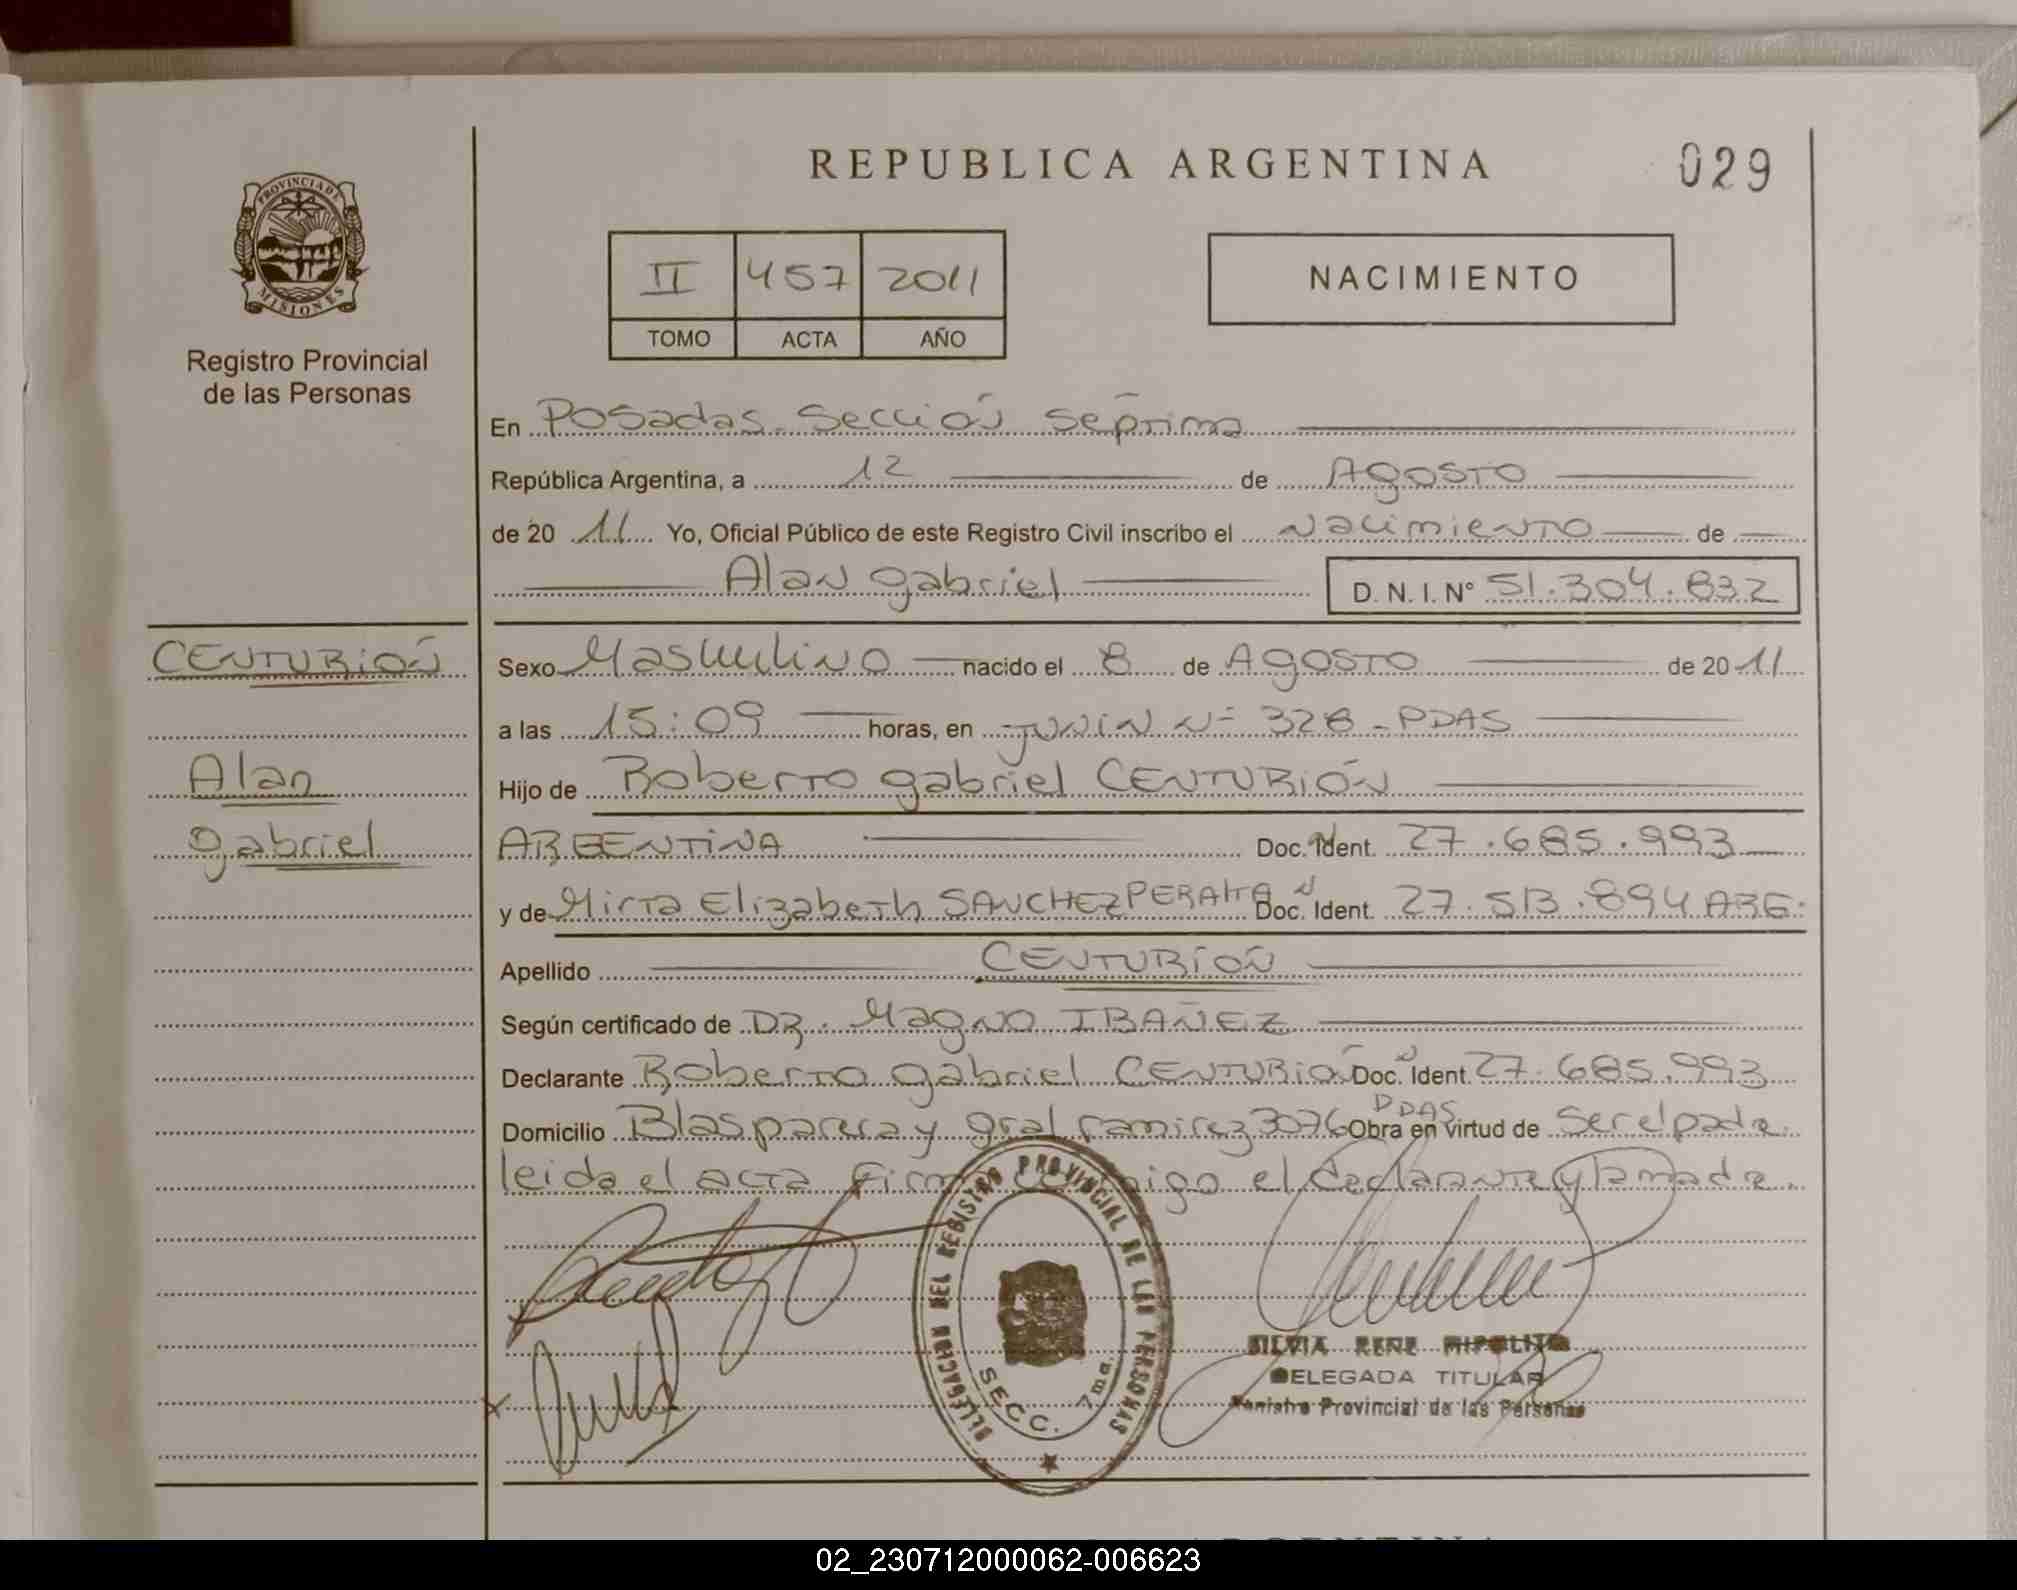 REPUBLICA ARGENTINA
029
PROVINCIA DE
MISIONES
Registro Provincial
de las Personas
II 457 2011
TOMO ACTA AÑO
NACIMIENTO
En Posadas Sección séptima
República Argentina, a 12 de Agosto
de 20 11 Yo, Oficial Público de este Registro Civil inscribo el Nacimiento de
Alan gabriel D. N. I. Nº 51.304.832
CENTURIÓN
Alan
gabriel
Sexo Masculino nacido el 8 de Agosto de 20 11
a las 15:09 horas, en junin Nº 328 - PDAS
Hijo de Roberto gabriel CENTURIÓN
ARGENTINA Doc. Ident. 27.685.993
y de Mirta Elizabeth SANCHEZ PERALTA Doc. Ident. 27.513.894 ARG.
Apellido CENTURIÓN
Según certificado de DR. Magno IBAÑEZ
Declarante Roberto gabriel CENTURIÓN Doc. Ident. 27.685.993
Domicilio Blas parera y gral ramirez 3076 PDAS Obra en virtud de ser el padre.
leida el acta firma conmigo el declarante y la madre.
DELEGACION DEL REGISTRO PROVINCIAL DE LAS PERSONAS
SECC. 7ma.
SILVIA RENE HIPOLITO
DELEGADA TITULAR
Registro Provincial de las Personas
02_230712000062-006623